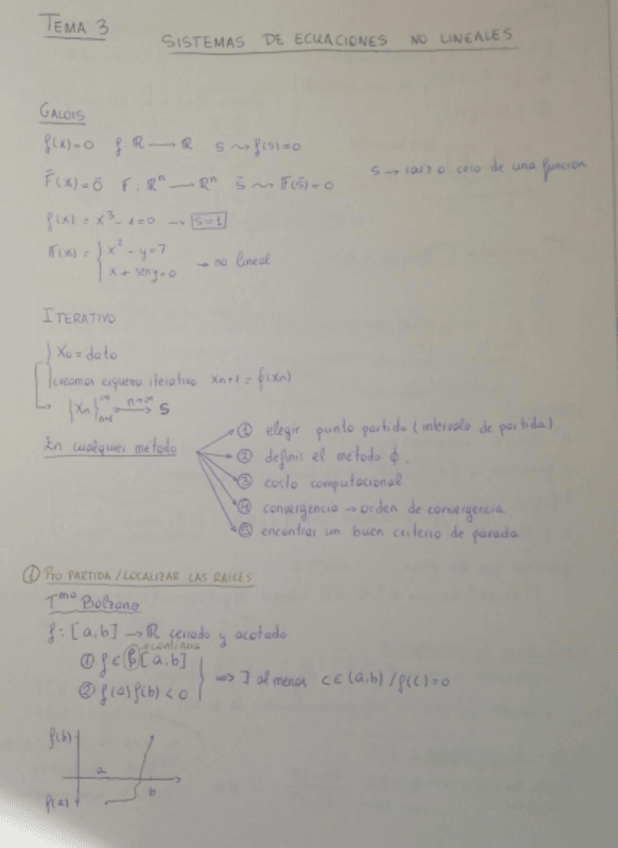 TEMA 3
SISTEMAS DE ECUACIONES NO LINEALES
GALOIS
f(x)=0 f: ℝ → ℝ s ⇝ f(s)=0
s → raiz o cero de una funcion
F̄(x)=0̄ F: ℝⁿ → ℝⁿ s̄ ⇝ F(s̄)=0
f(x) = x³-1=0 → s=1
F(x) = { x² - y=7
x + sen y=0 → no lineal
ITERATIVO
{ x₀ = dato
creamos esquema iterativo xn+1 = ϕ(xn)
→ {xn}∞n=1 n→∞ → s
En cualquier metodo
① elegir punto partida (intervalo de partida)
② definir el metodo ϕ.
③ costo computacional
④ convergencia → orden de convergencia
⑤ encontrar un buen criterio de parada
① PTO PARTIDA / LOCALIZAR LAS RAICES
Tma Bolzano
f: [a,b] → ℝ cerrado y acotado
continua
① f ∈ C[a,b]
② f(a)f(b) < 0 } => ∃ al menos c ∈ (a,b) / f(c)=0
f(b)
a
b
f(a)